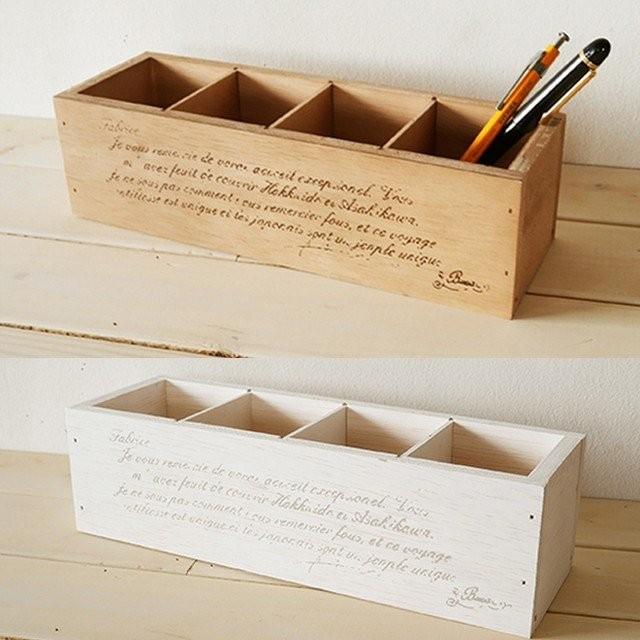 Fabrice
Je vous reme cie de votre accueil exceptionel. Vous
m' avez feuit de couvrir Hokkaido et Asahikawa.
Je ne sous pas comment vous remercier fous, et ce voyage
entillesse est unique et les japonais sont un peuple unique
Fabrice
Je vous reme cie de votre accueil exceptionel. Vous
m' avez feuit de couvrir Hokkaido et Asahikawa.
Je ne sous pas comment vous remercier fous, et ce voyage
entillesse est unique et les japonais sont un peuple unique